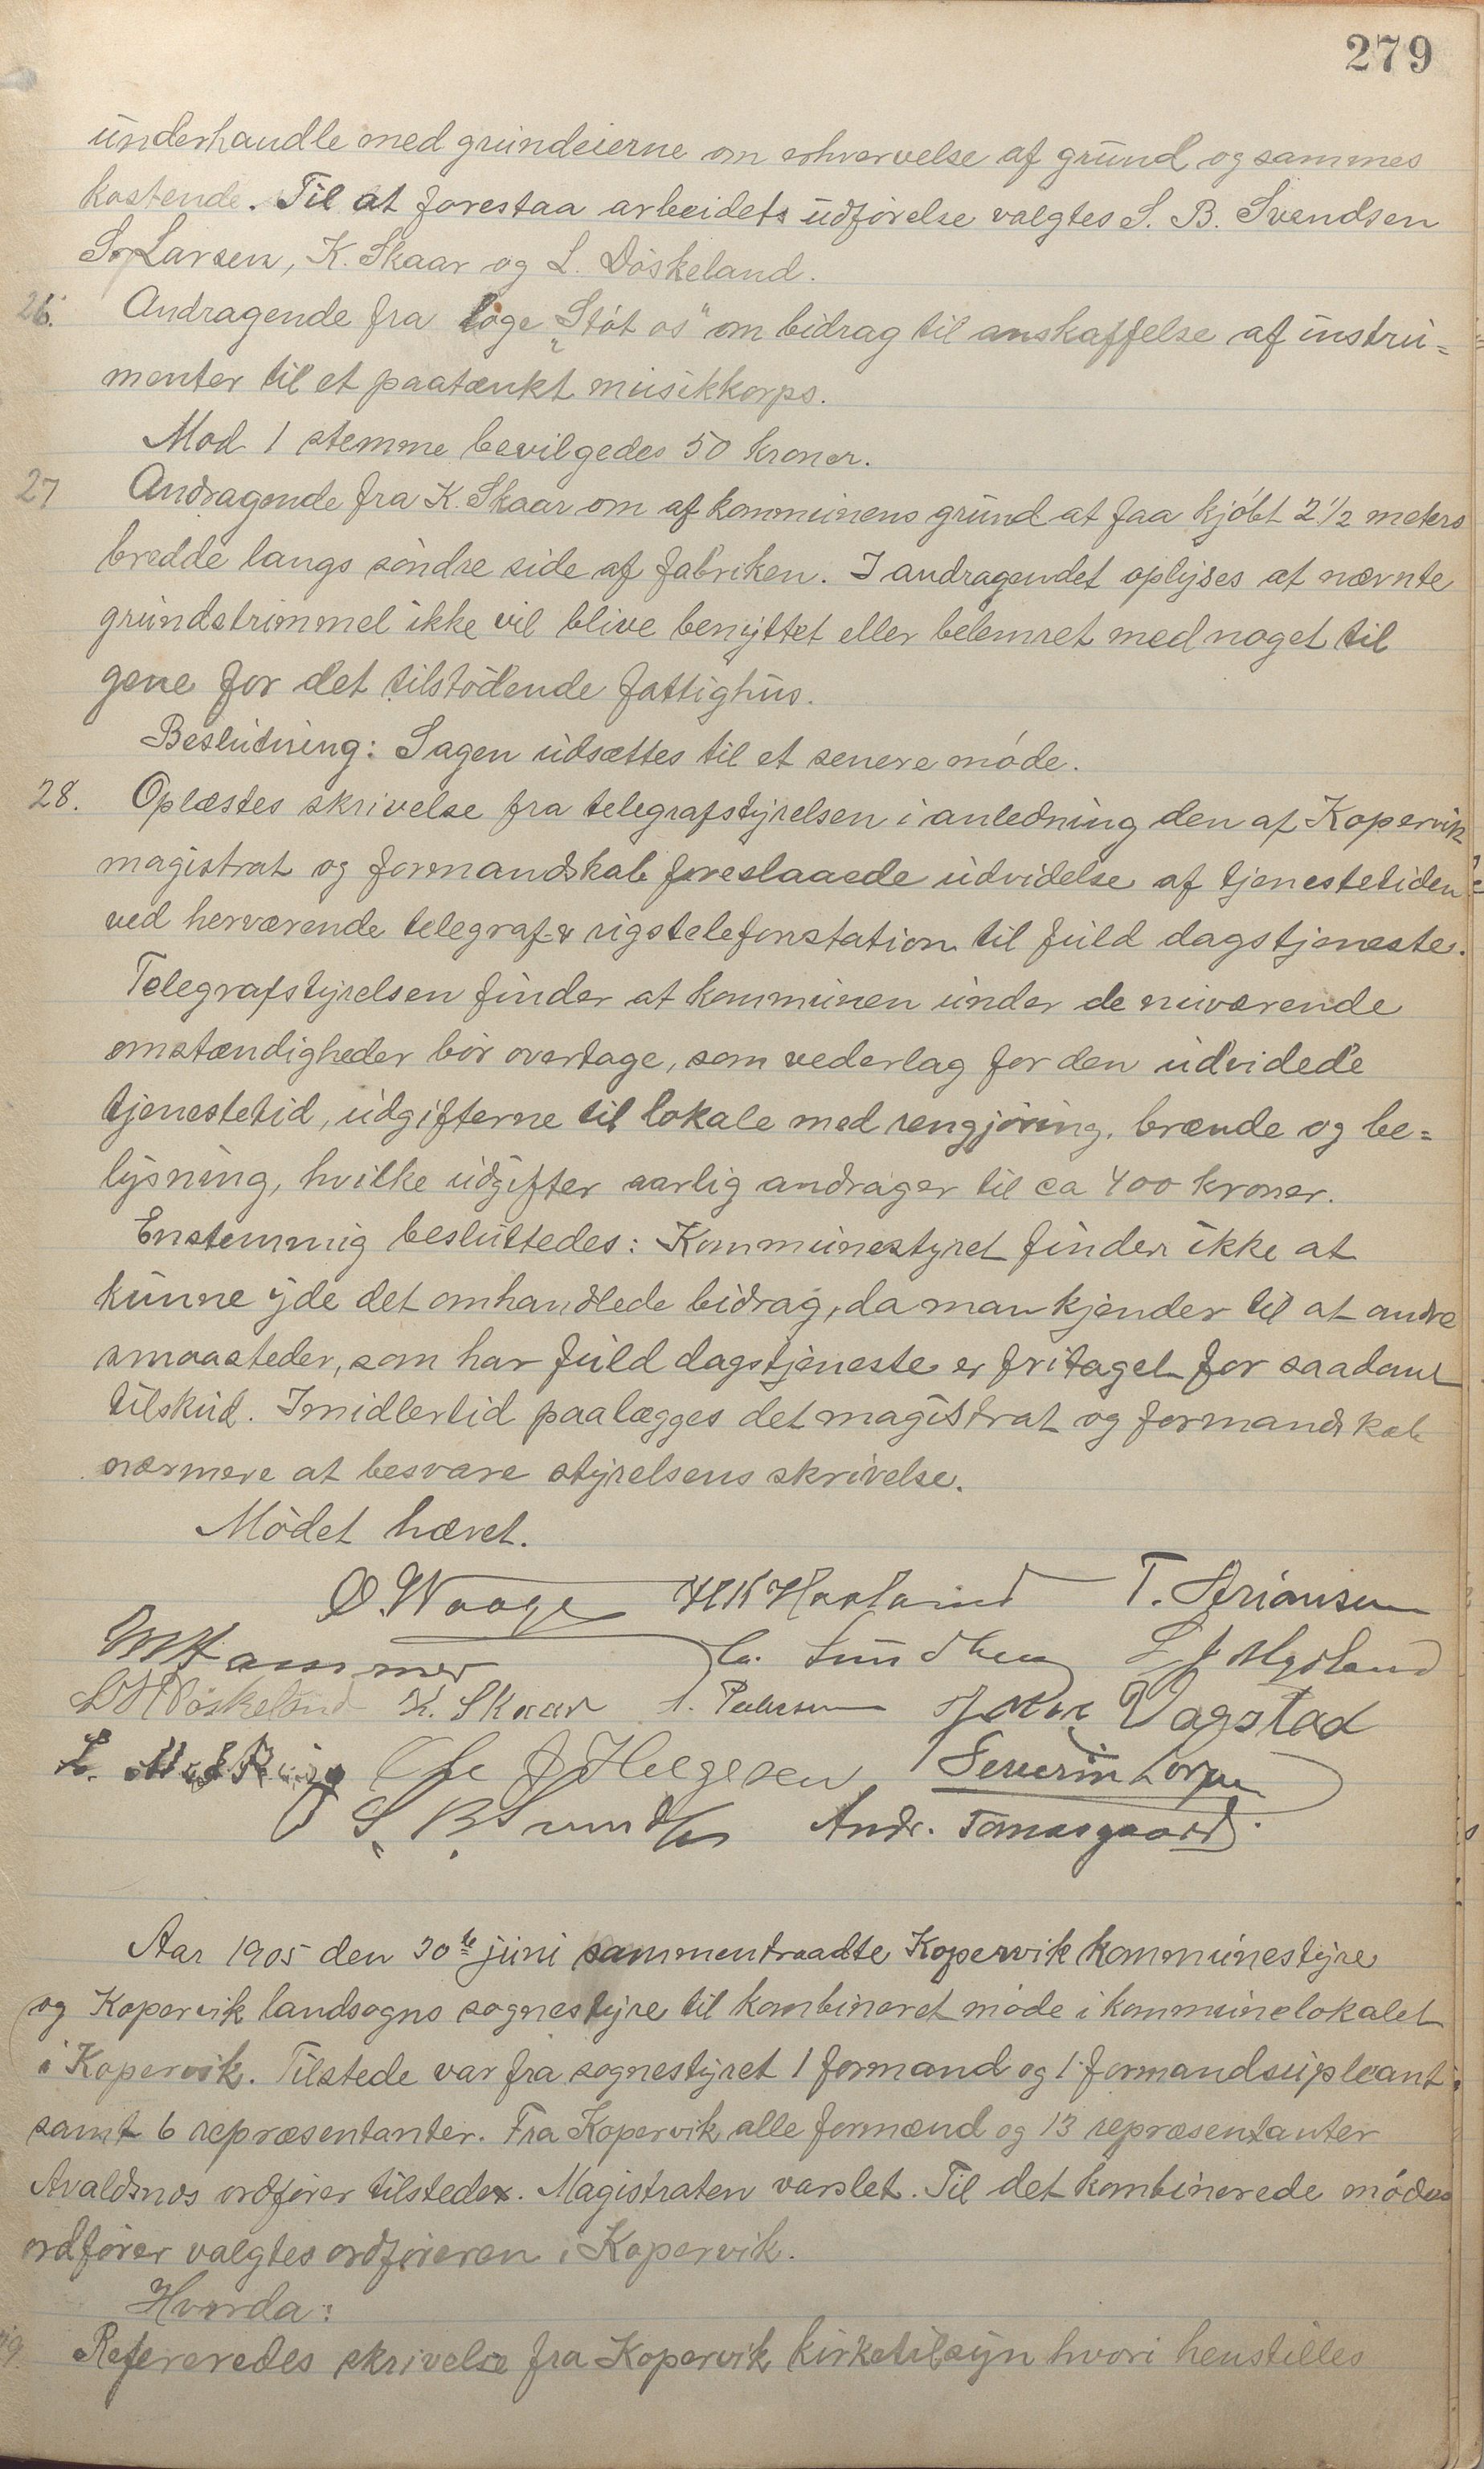 279
underhandle med grundeierne om erhvervelse af grund og sammes
kostende. Til at forestaa arbeidets udførelse valgtes S. B. Svendsen
S. Larsen, K. Skaar og L. Døskeland.
26. Andragende fra loge „Støt os" om bidrag til anskaffelse af instru=
menter til et paatænkt musikkorps.
Mod 1 stemme bevilgedes 50 kroner.
27 Andragende fra K. Skaar om af kommunens grund at faa kjøbt 2 1/2 meters
bredde langs søndre side af fabriken. I andragendet oplyses at nævnte
grundstrimmel ikke vil blive benyttet eller belemret med noget til
gene for det tilstødende fattighus.
Beslutning: Sagen udsættes til et senere møde.
28. Oplæstes skrivelse fra telegrafstyrelsen i anledning den af Kopervik
magistrat og formandskab foreslaaede udvidelse af tjenestetiden
ved herværende telegraf- & rigstelefonstation til fuld dagstjeneste.
Telegrafstyrelsen finder at kommunen under de nuværende
omstændigheder bør overtage, som vederlag for den udvidede
tjenestetid, udgifterne til lokale med rengjøring, brænde og be=
lysning, hvilke udgifter aarlig andrager til ca 400 kroner.
Enstemmig besluttedes: Kommunestyret finder ikke at
kunne yde det omhandlede bidrag, da man kjender til at andre
smaasteder, som har fuld dagstjeneste er fritaget for saadant
tilskud. Imidlertid paalægges det magistrat og formandskab
nærmere at besvare styrelsens skrivelse.
Mødet hævet.
O. Waage H K Haaland T.
M Hammer
L Døskeland K. Skaar Pedersen Vagstad
J Helgesen Severin
S. B. Andr.
Aar 1905 den 30te juni sammentraadte Kopervik kommunestyre
og Kopervik landsogns sognestyre til kombineret møde i kommunelokalet
i Kopervik. Tilstede var fra sognestyret 1 formand og 1 formandsupleant
samt 6 repræsentanter. Fra Kopervik alle formænd og 13 repræsentanter
Avaldsnes ordfører tilstede. Magistraten varslet. Til det kombinerede mødes
ordfører valgtes ordføreren i Kopervik.
Hvorda:
Refereredes skrivelse fra Kopervik kirketilsyn hvori henstilles